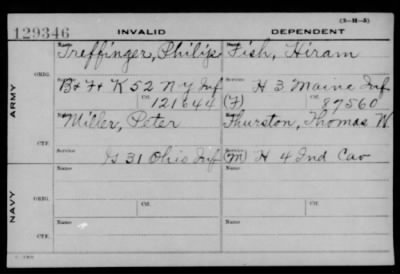 (3-M-5)
129346 INVALID DEPENDENT
Name Treffinger, Philip Fish, Hiram
ORIG.
Service B+ F+ K 52 N Y Inf Service H 3 Maine Inf
Ctf. 121644 (F) Ctf. 87560
ARMY
Name Miller, Peter Name Thurston, Thomas W.
CTF.
Service G 31 Ohio Inf (M) H 4 Ind Cav
Name Name
ORIG.
Service Ctf. Service Ctf.
NAVY
Name Name
CTF.
Service Service